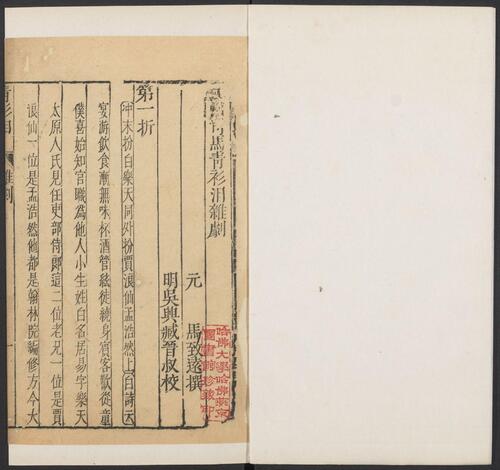 江州司馬青衫淚雜劇
元 馬致遠撰
明吳興臧晉叔校
第一折
冲末扮白樂天同外扮賈浪仙孟浩然上白詩云
宴游飲食漸無味杯酒管絃徒繞身賓客歡從童
僕喜始知官職為他人小生姓白名居易字樂天
太原人氏見任吏部侍郎這二位老兄一位是賈
浪仙一位是孟浩然他都是翰林院編修方今大
青衫淚 雜劇 一
哈佛大學哈佛燕京圖書館珍藏印